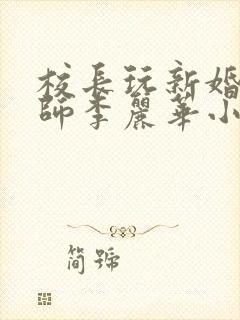 校長玩新婚
師李麗華小
簡號